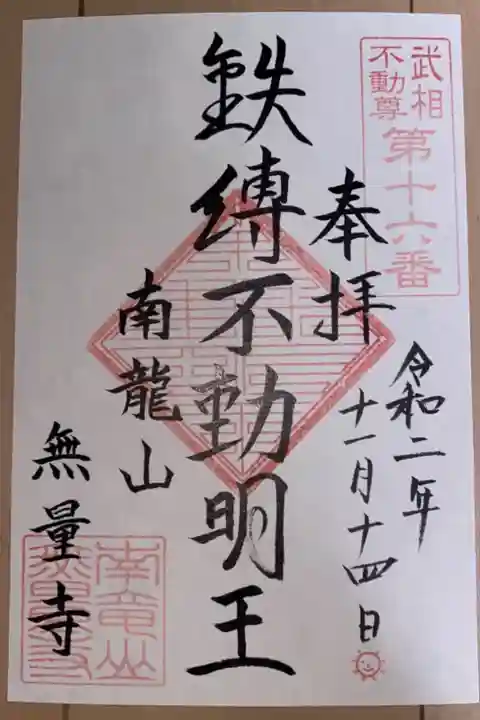 武相
不動尊
第十六番
令和二年
十一月十四日
奉拝
鉄縛不動明王
南龍山
無量寺